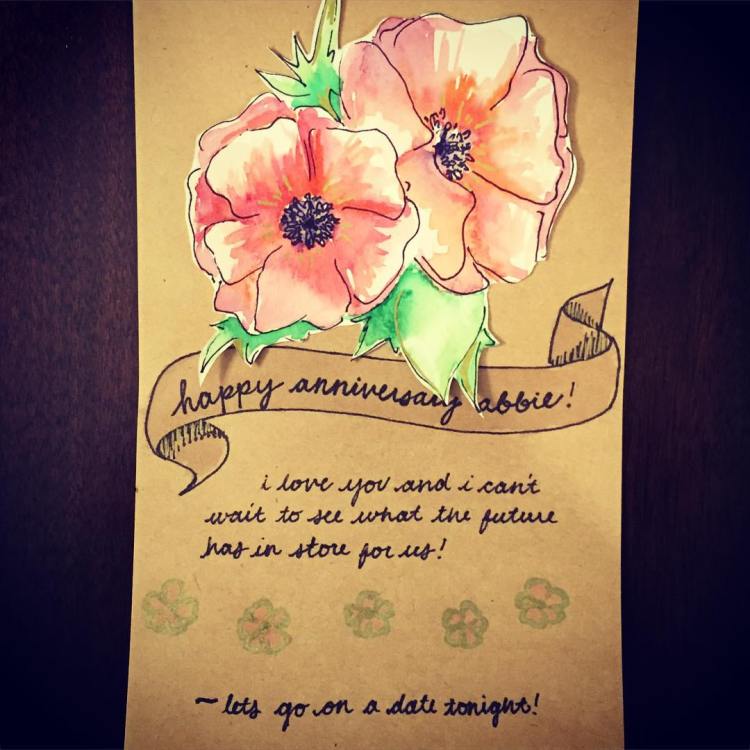 happy anniversary abbie!
i love you and i can't
wait to see what the future
has in store for us!
~ lets go on a date tonight!